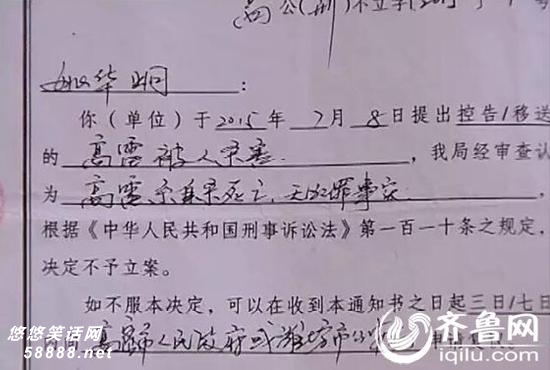 高公(刑)不立字[2015]
：
你（单位）于2015年7月8日提出控告/移送
的高雷被人杀害，我局经审查认
为高雷系自杀死亡，无犯罪事实，
根据《中华人民共和国刑事诉讼法》第一百一十条之规定，
决定不予立案。
如不服本决定，可以在收到本通知书之日起三日/七日
高密市人民政府或潍坊市公
悠悠笑话网
58888.net
齐鲁网
iqilu.com